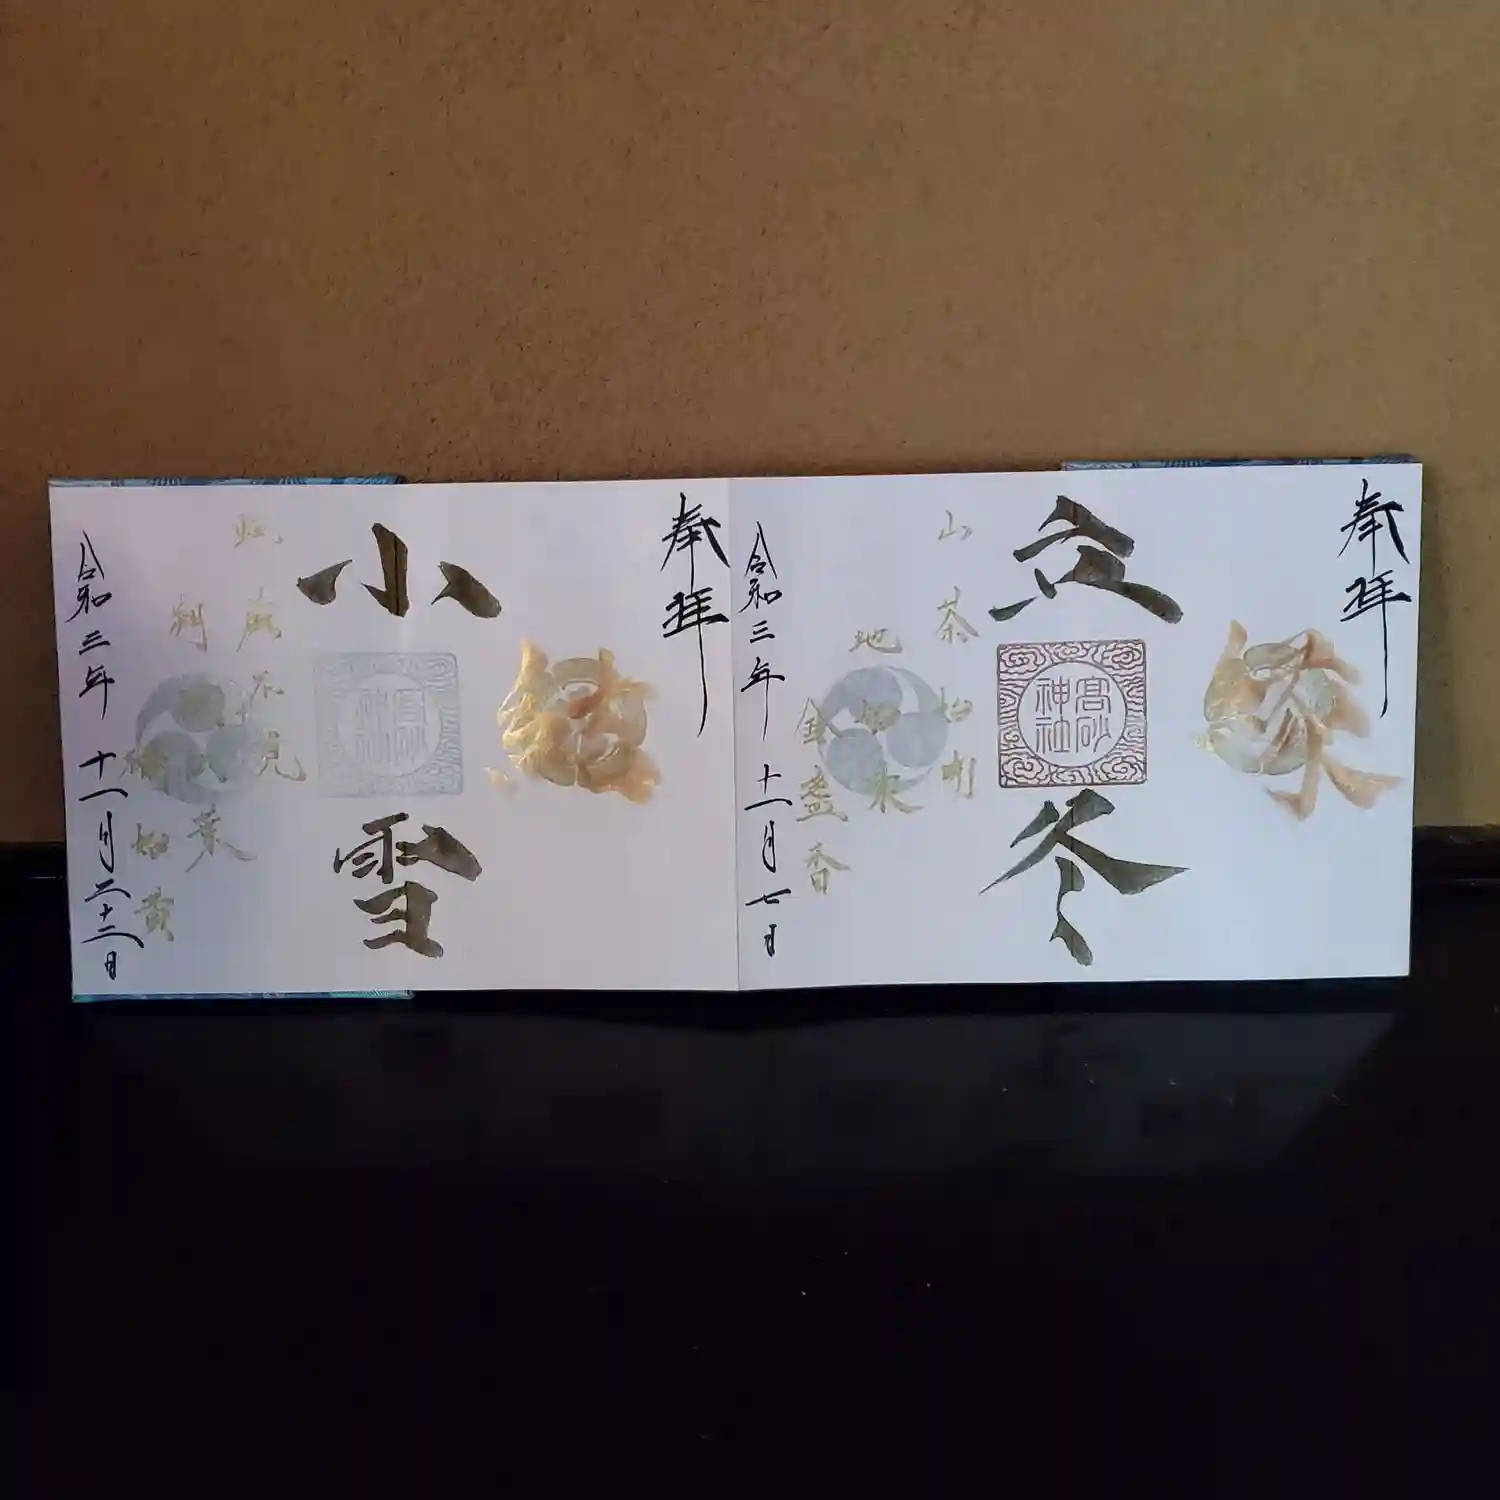 奉拝
立冬
高砂
神社
山茶始開
地始氷
金盞香
令和三年十一月七日
奉拝
小雪
高砂
神社
虹蔵不見
朔
葉
橘始黄
令和三年十一月二十二日